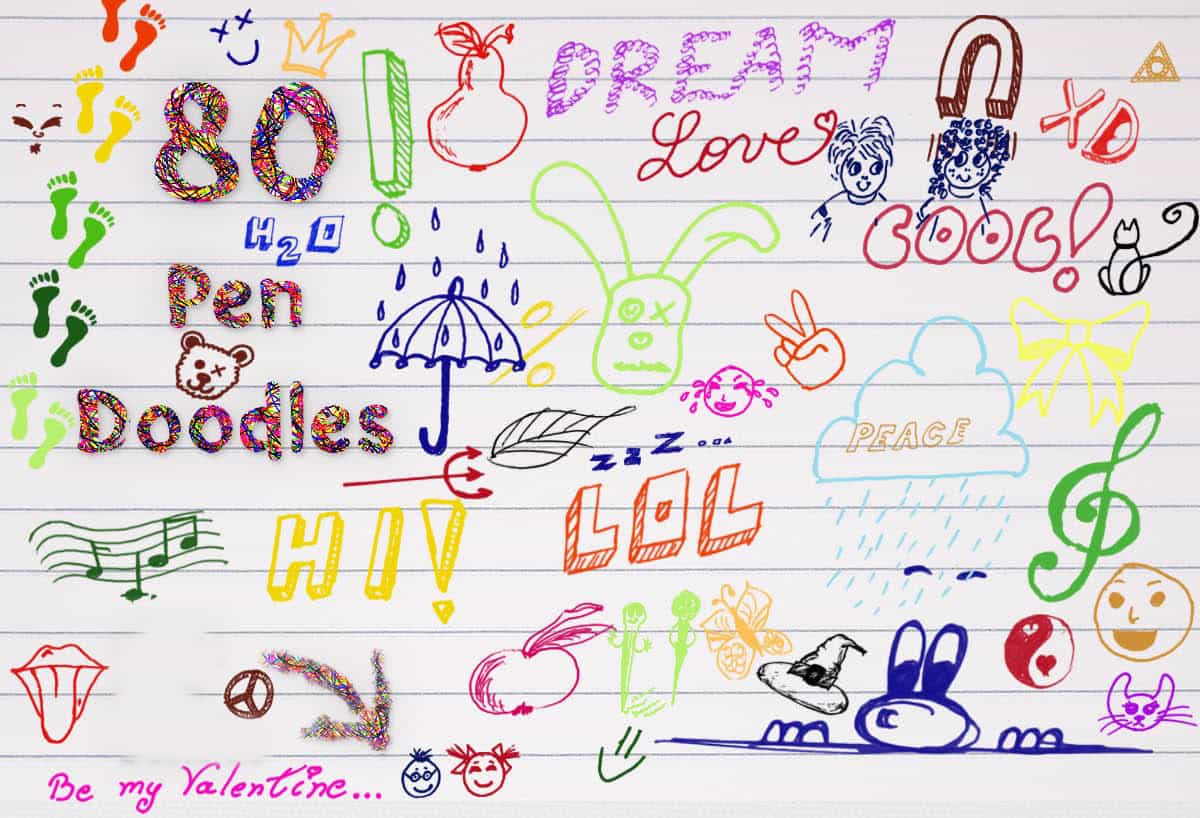 DREAM
XD
80!
Love
COOL!
H2O
Pen
Doodles
PEACE
zzz...
LOL
HI!
Be my Valentine...